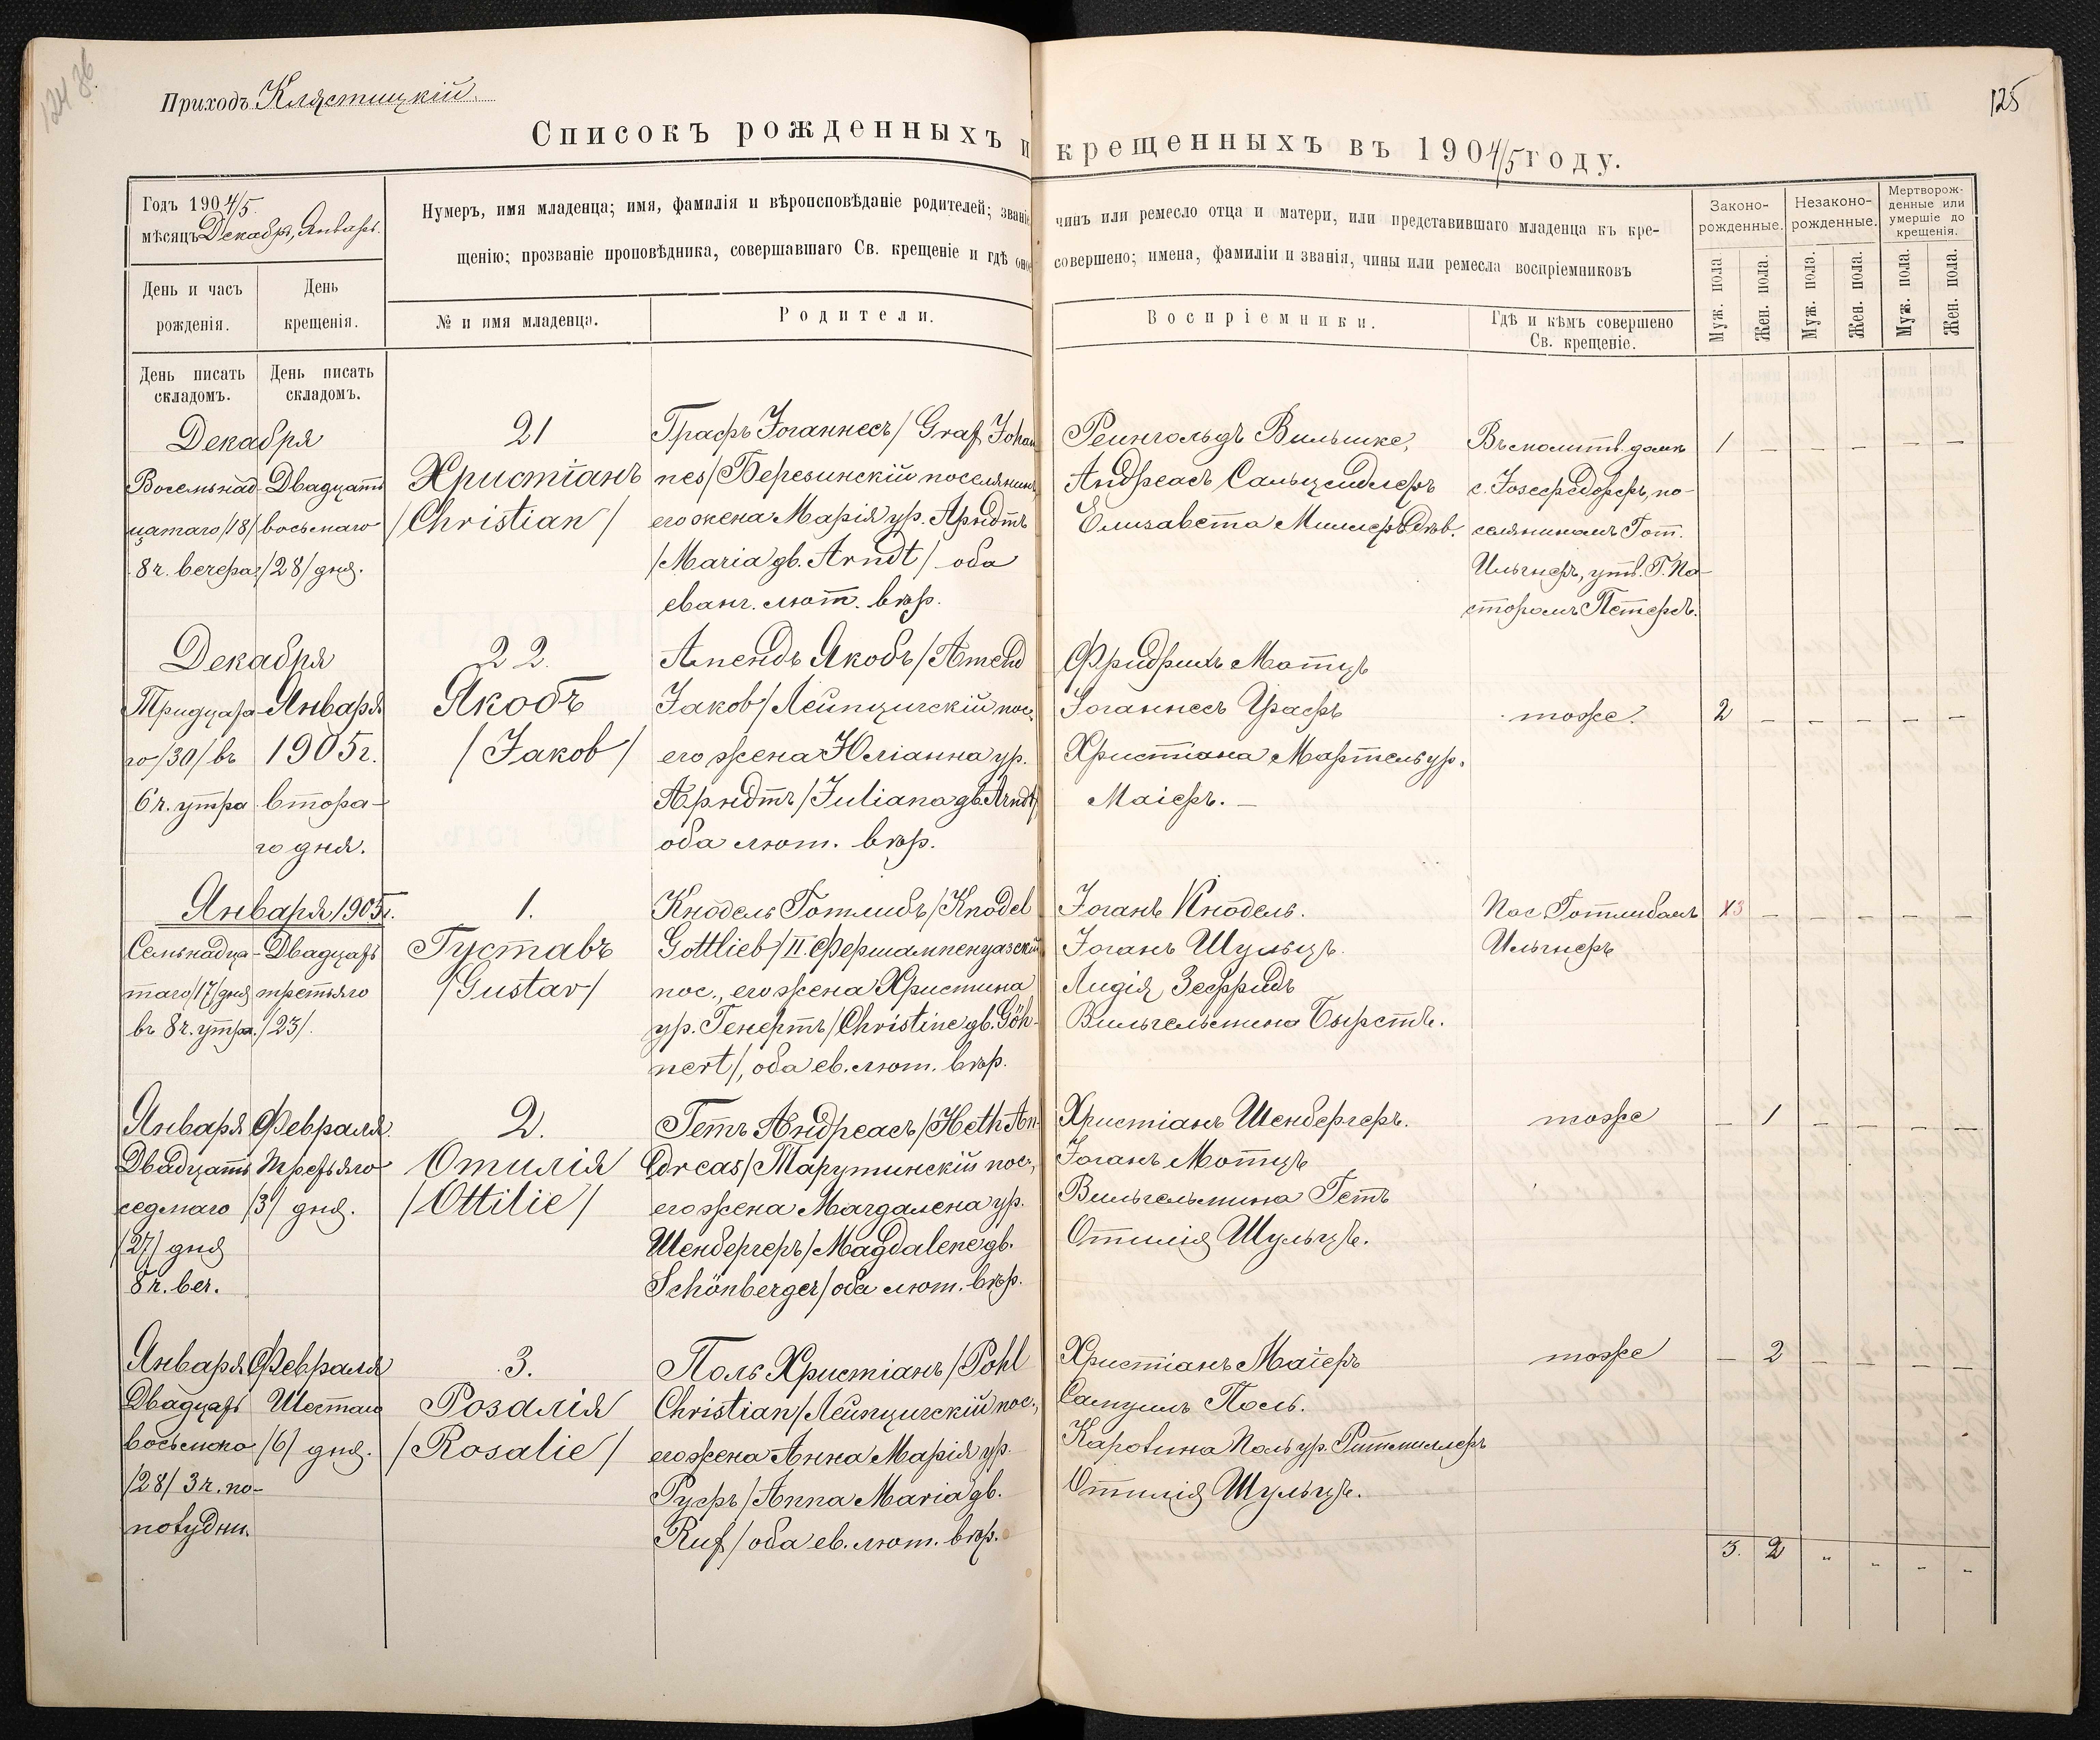 124 36
125
Приходъ Клястицкій.
Списокъ рожденныхъ и крещенныхъ въ 1904/5 году.
Годъ 1904/5.
мѣсяцъ Декабрь, Январь.
День и часъ рожденія.
День крещенія.
Нумеръ, имя младенца; имя, фамилія и вѣроисповѣданіе родителей; званіе чинъ или ремесло отца и матери, или представившаго младенца къ кре-
щенію; прозваніе проповѣдника, совершавшаго Св. крещеніе и гдѣ оное совершено; имена, фамиліи и званія, чины или ремесла воспріемниковъ
№ и имя младенца.
Родители.
Воспріемники.
Гдѣ и кѣмъ совершено
Св. крещеніе.
Законо-
рожденные.
Незаконо-
рожденные.
Мертворож-
денные или
умершіе до
крещенія.
Муж. пола.
Жен. пола.
Муж. пола.
Жен. пола.
Муж. пола.
Жен. пола.
День писать
складомъ.
День писать
складомъ.
Декабря
Восемьнад-
цатаго /18/
8 ч. вечера
Двадцать
восьмаго
/28/ дня.
21
Христіанъ
/Christian/
Графъ Іоганнесъ /Graf Johan
nes/ Березинскій поселянинъ
его жена Марія ур. Арндтъ
/Maria gb. Arndt/ оба
еванг. лют. вѣр.
Реингольдъ Вильшке,
Андреасъ Сальцейдлеръ
Елизавета Миллеръ дѣв.
Въ молитв. домѣ
с. Іосефсдорфъ, по-
селяниномъ Гот.
Ильгнеръ, утв. Г. Па-
сторомъ Петерсъ.
1 – – – – –
Декабря
Тридцата-
го /30/ въ
6 ч. утра
Января
1905 г.
втора-
го дня.
22.
Якобъ
/Jakob/
Амендъ Якобъ /Amend
Jakob/ Лейпцигскій пос.
его жена Юліанна ур.
Арндтъ /Juliana gb. Arndt/
оба лют. вѣр.
Фридрихъ Мотцъ
Іоганнесъ Графъ
Христіана Мартель ур.
Маіеръ. –
тоже.
2 – – – – –
Января 1905 г.
Семьнадца-
таго /17/ дня
въ 8 ч. утра.
Двадцать
третьяго
/23/.
1.
Густавъ
/Gustav/
Кнодель Готлибъ /Knodel
Gottlieb/ II. Фершампенуазскій
пос., его жена Христина
ур. Генертъ /Christine gb. Göh-
nert/, оба ев. лют. вѣр.
Іоганъ Кнодель.
Іоганъ Шульцъ.
Лидія Зеффридъ
Вильгельмина Бирстъ.
Пос. Готлибомъ
Ильгнеръ
3 – – – – –
Января
Двадцать
седмаго
/27/ дня
8 ч. веч.
Февраля
третьяго
/3/ дня.
2.
Отилія
/Ottilie/
Гетъ Андреасъ /Heth An-
dreas/ Тарутинскій пос.,
его жена Магдалена ур.
Шенбергеръ /Magdalene gb.
Schönberger/ оба лют. вѣр.
Христіанъ Шенбергеръ.
Іоганъ Мотцъ
Вильгельмина Гетъ
Отилія Шульцъ.
тоже
– 1 – – – –
Января
Двадцать
восьмого
/28/ 3 ч. по-
полудни.
Февраля
Шестаго
/6/ дня.
3.
Розалія
/Rosalie/
Поль Христіанъ /Pohl
Christian/ Лейпцигскій пос.,
его жена Анна Марія ур.
Руфъ /Anna Maria gb.
Ruf/ оба ев. лют. вѣр.
Христіанъ Маіеръ
Самуилъ Поль.
Каролина Поль ур. Ритмиллеръ
Отилія Шульцъ.
тоже
– 2 – – – –
3. 2 „ – – –